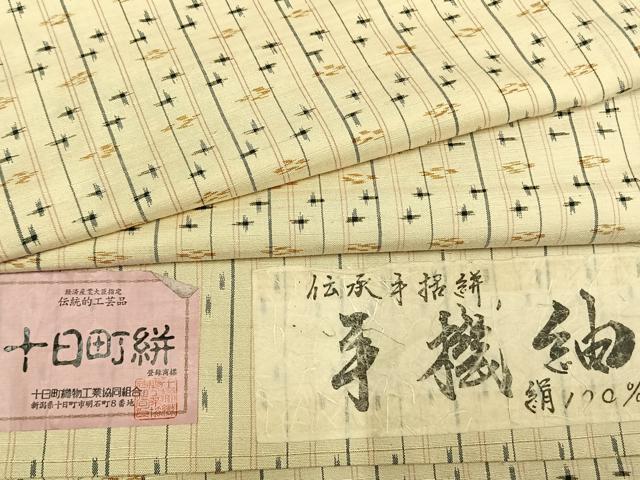 経済産業大臣指定
伝統的工芸品
十日町絣
登録商標
十日町織物工業協同組合
新潟県十日町市明石町8番地
伝承手括絣,
手機紬
絹100%